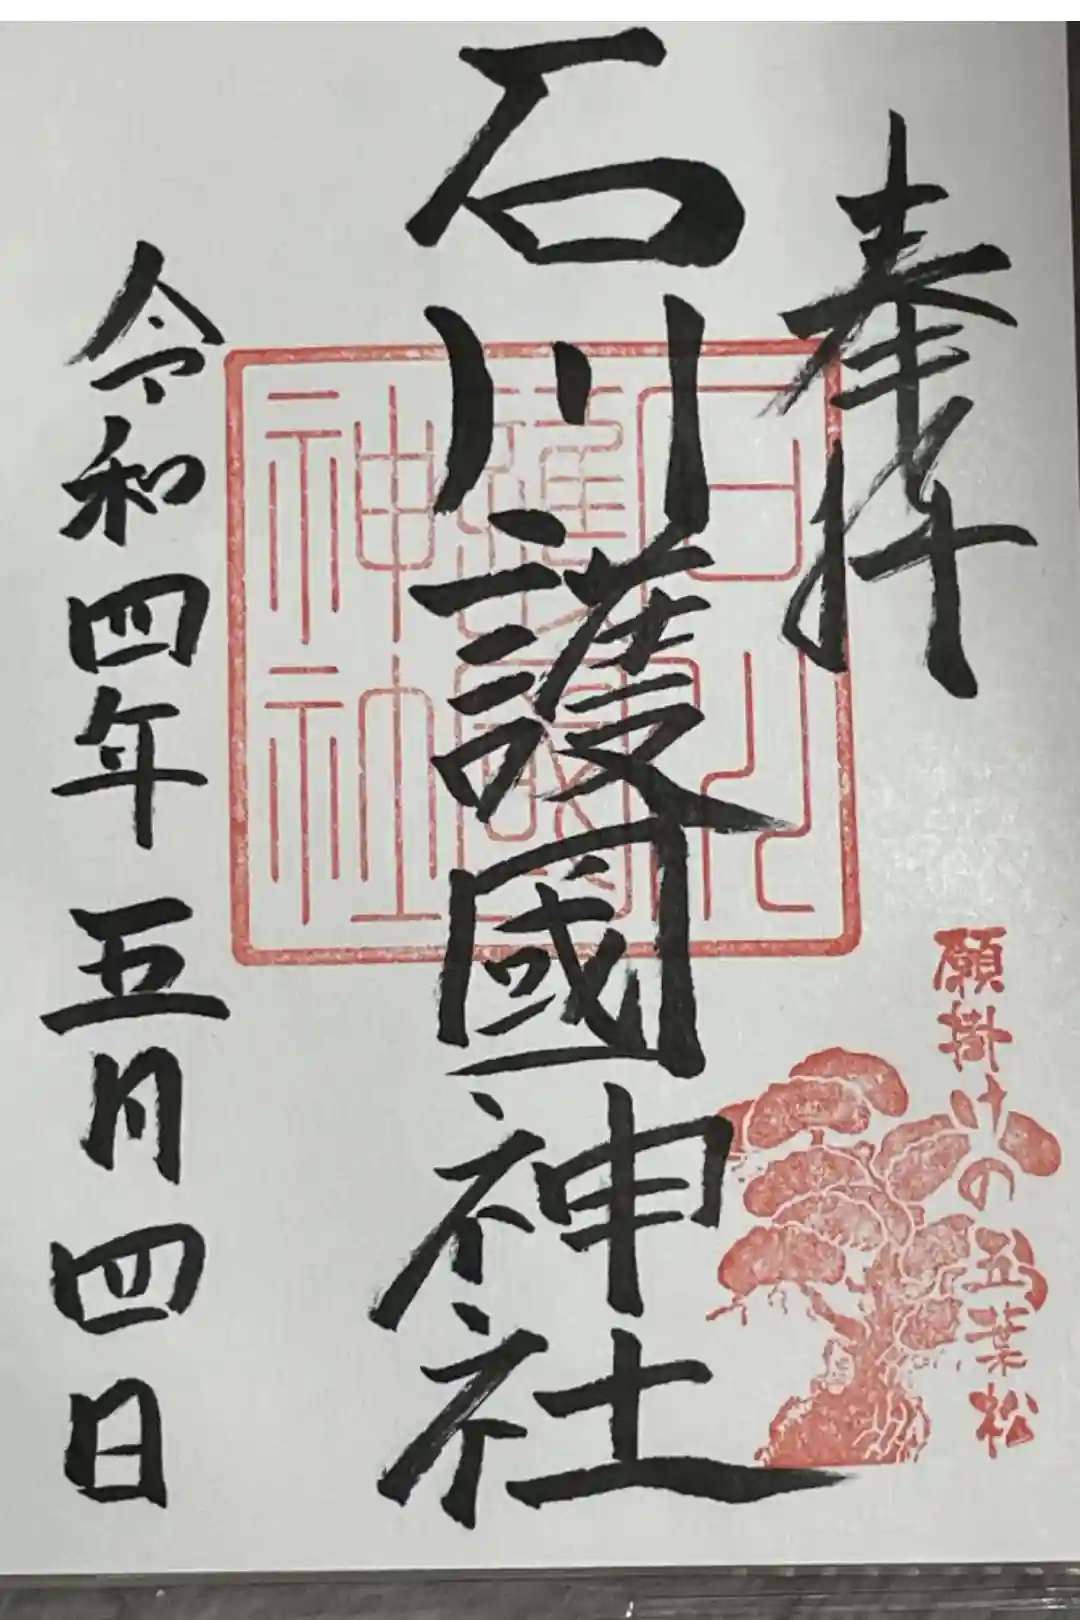 奉拝
願掛けの五葉松
石川護國神社
石川
護國
神社
令和四年五月四日